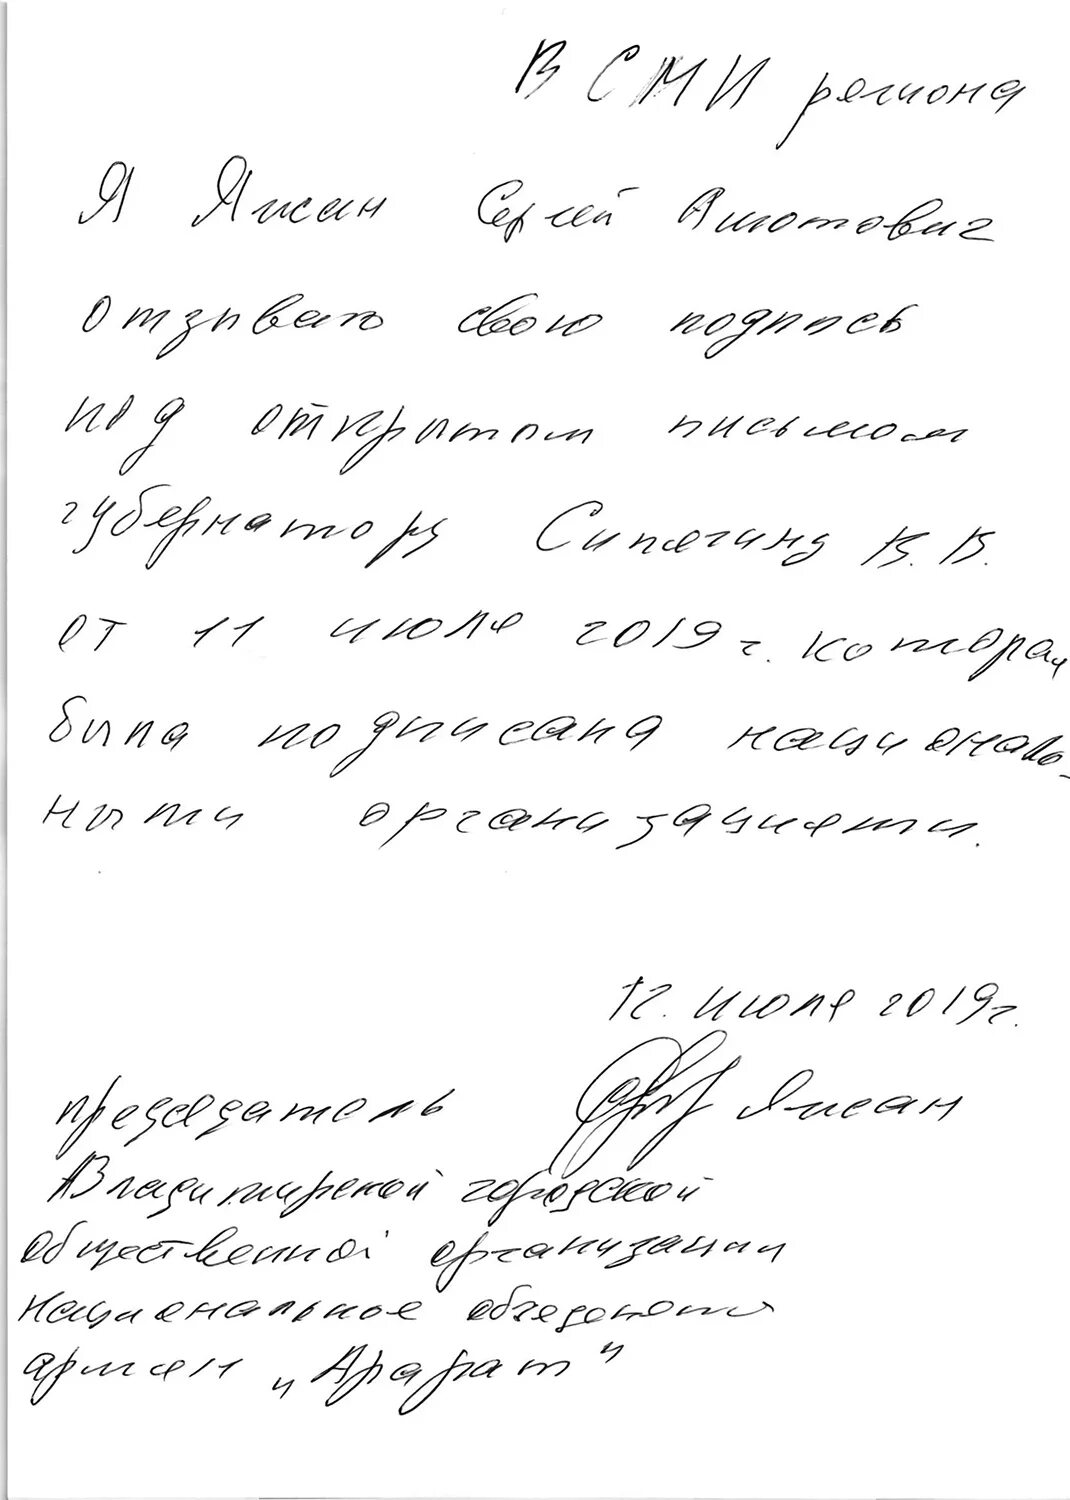 В СМИ региона
Я Яксан Сергей Ашотович
отзываю свою подпись
под открытом письмом
губернатору Сипягину В.В.
от 11 июля 2019 г. которая
была подписана националь-
ными организациями.
12. июля 2019г.
председатель Яксан
Владимирской городской
общественной организации
национальное объеденение
армян „Арарат"